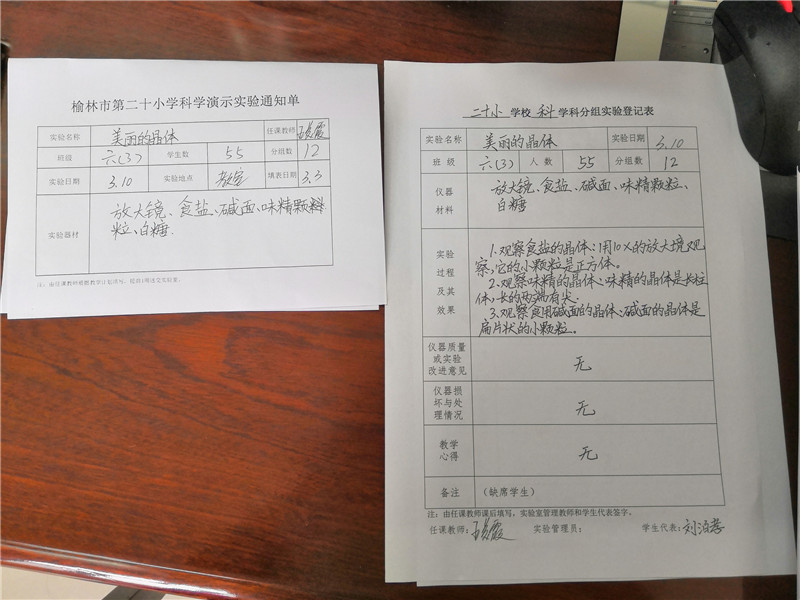 榆林市第二十小学科学演示实验通知单
实验名称 美丽的晶体 任课教师
班级 六(3) 学生数 55 分组数 12
实验日期 3.10 实验地点 教室 填表日期 3.3
实验器材 放大镜、食盐、碱面、味精颗料
粒、白糖.
注：由任课教师根据教学计划填写，提前1周送交实验室。
二十小 学校 科 学科分组实验登记表
实验名称 美丽的晶体 实验日期 3.10
班 级 六(3) 人 数 55 分组数 12
仪器
材料
放大镜、食盐、碱面、味精颗粒、
白糖
实验
过程
及其
效果
1.观察食盐的晶体:用10×的放大境观
察,它的小颗粒是正方体。
2.观察味精的晶体:味精的晶体是长柱
体,长的两端有尖.
3.观察食用碱面的晶体:碱面的晶体是
扁片状的小颗粒。
仪器质量
或实验
改进意见
无
仪器损
坏与处
理情况
无
教学
心得
无
备注 （缺席学生）
注：由任课教师课后填写，实验室管理教师和学生代表签字。
任课教师： 实验管理员： 学生代表：